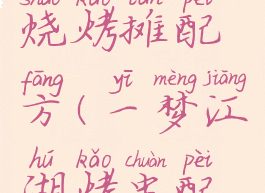 shāo kǎo tān pèi
烧烤摊配
fāng yī mèng jiāng
方(一梦江
hú kǎo chuàn pèi
湖烤串配